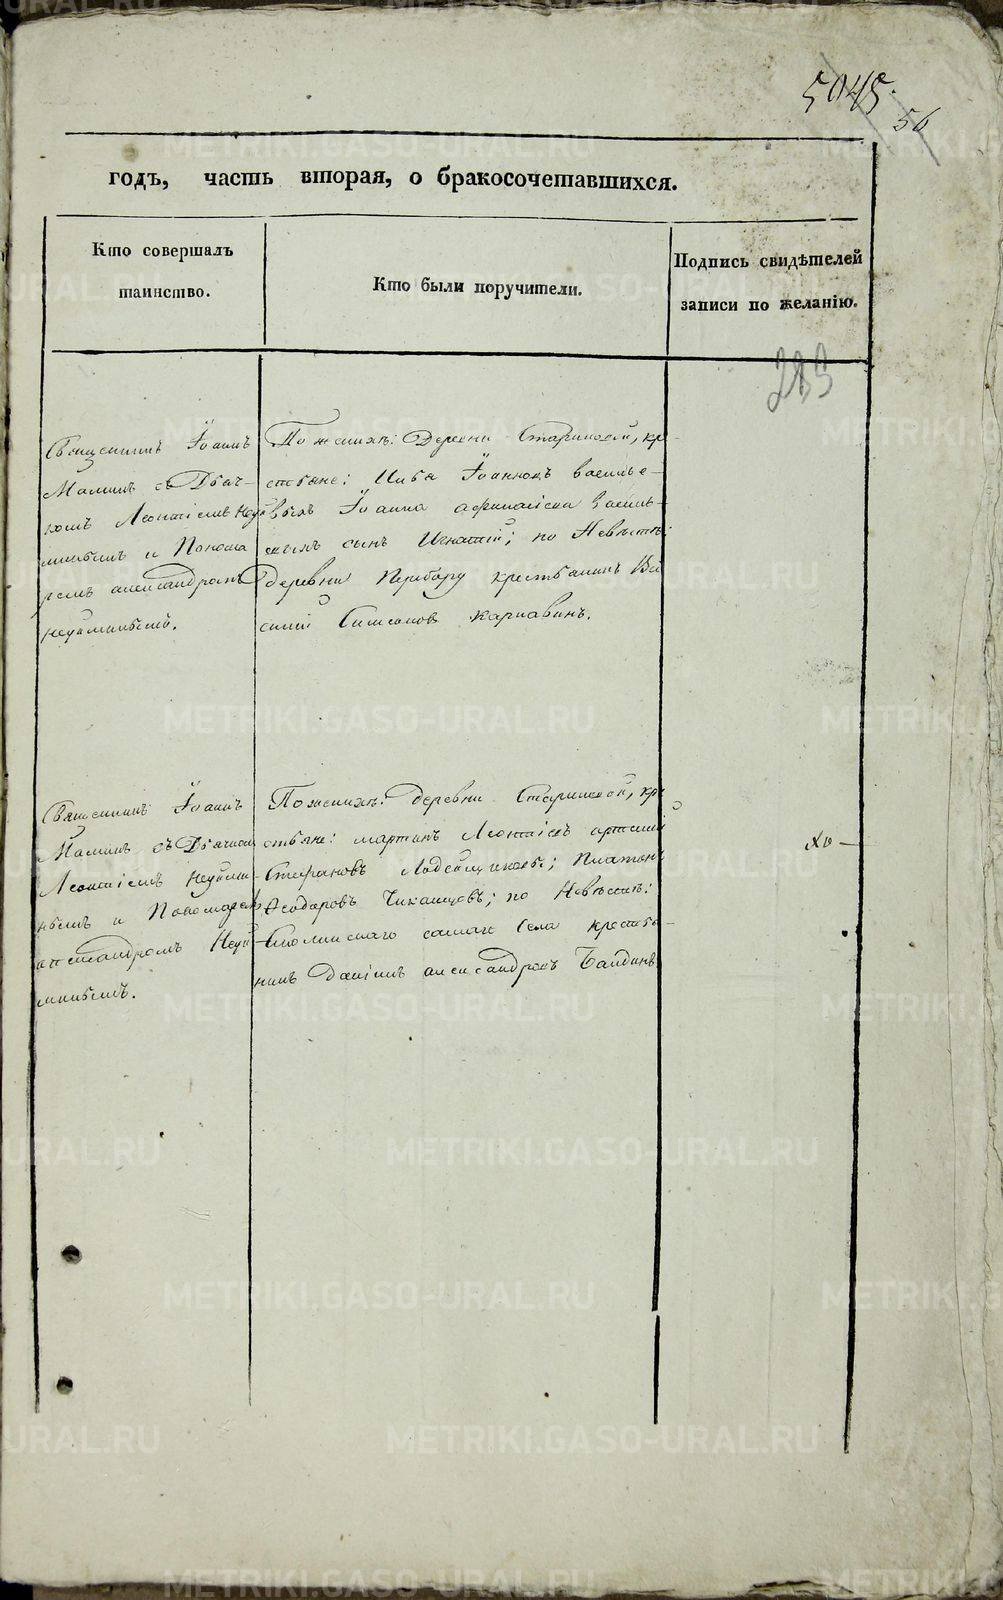 5045.
56
годъ, часть вторая, о бракосочетавшихся.
Кто совершалъ
таинство.
Кто были поручители.
Подпись свидѣтелей
записи по желанію.
Священникъ Іоаннъ
Малинъ съ Дьяч-
комъ Леонтіемъ Неуй
минымъ и Понома
ремъ александромъ
неуйминымъ.
По женихѣ: деревни кре-
стьяне: Іоанновъ василье-
выхъ Іоанна Василь-
сынъ Игнатій; по Невѣстѣ:
деревни крестьянинъ Ва
силій Симеоновъ карпавинъ.
Священникъ Іоаннъ
Малинъ съ Дьячкомъ
Леонтіемъ Неуйми-
нымъ и Пономаремъ
александромъ Неуй-
минымъ.
По женихѣ: деревни кре
стьяне: мартинъ Леонтіевъ артемій
Стефановъ Лодейщиковы; Платонъ
Ѳеодоровъ по Невѣстѣ:
села крестья-
нинъ Даніилъ александровъ Балдинъ.
METRIKI.GASO-URAL.RU